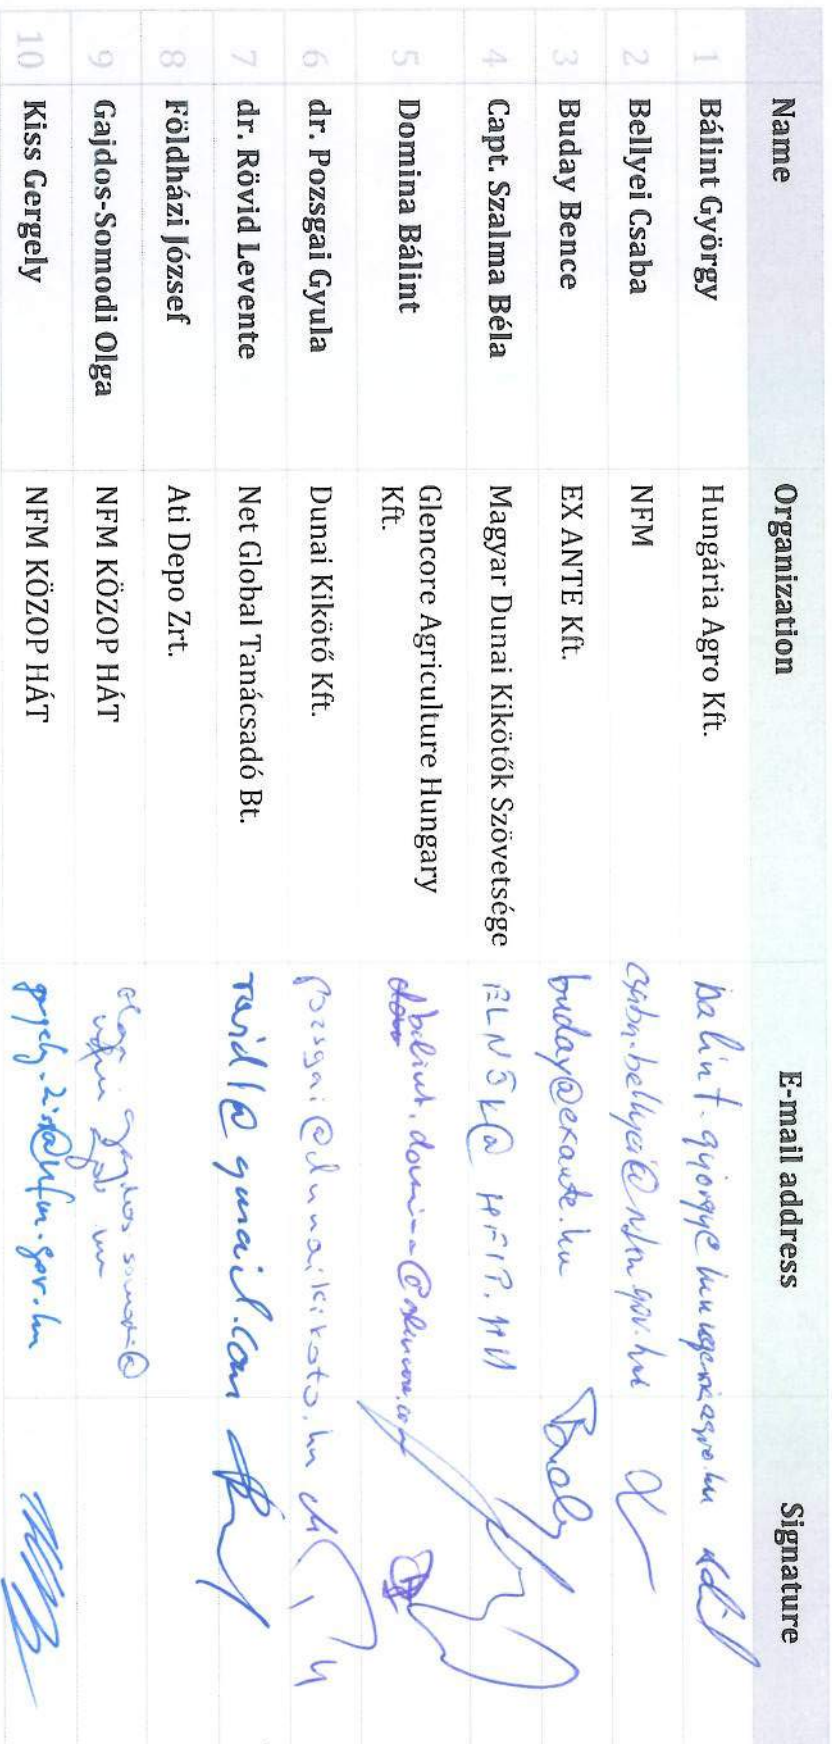 Name Organization E-mail address Signature
1 Bálint György Hungária Agro Kft. balint.gyorgy@hungariaagro.hu
2 Bellyei Csaba NFM csaba.bellyei@nfm.gov.hu
3 Buday Bence EX ANTE Kft. buday@exante.hu
4 Capt. Szalma Béla Magyar Dunai Kikötők Szövetsége ELNÖK@HFIP.HU
5 Domina Bálint Glencore Agriculture Hungary
Kft. balint.domina@glencore.com
6 dr. Pozsgai Gyula Dunai Kikötő Kft. pozsgai@dunaikikoto.hu
7 dr. Rövid Levente Net Global Tanácsadó Bt. rovidl@gmail.com
8 Földházi József Ati Depo Zrt.
9 Gajdos-Somodi Olga NFM KÖZOP HÁT
10 Kiss Gergely NFM KÖZOP HÁT gergely.kiss@nfm.gov.hu